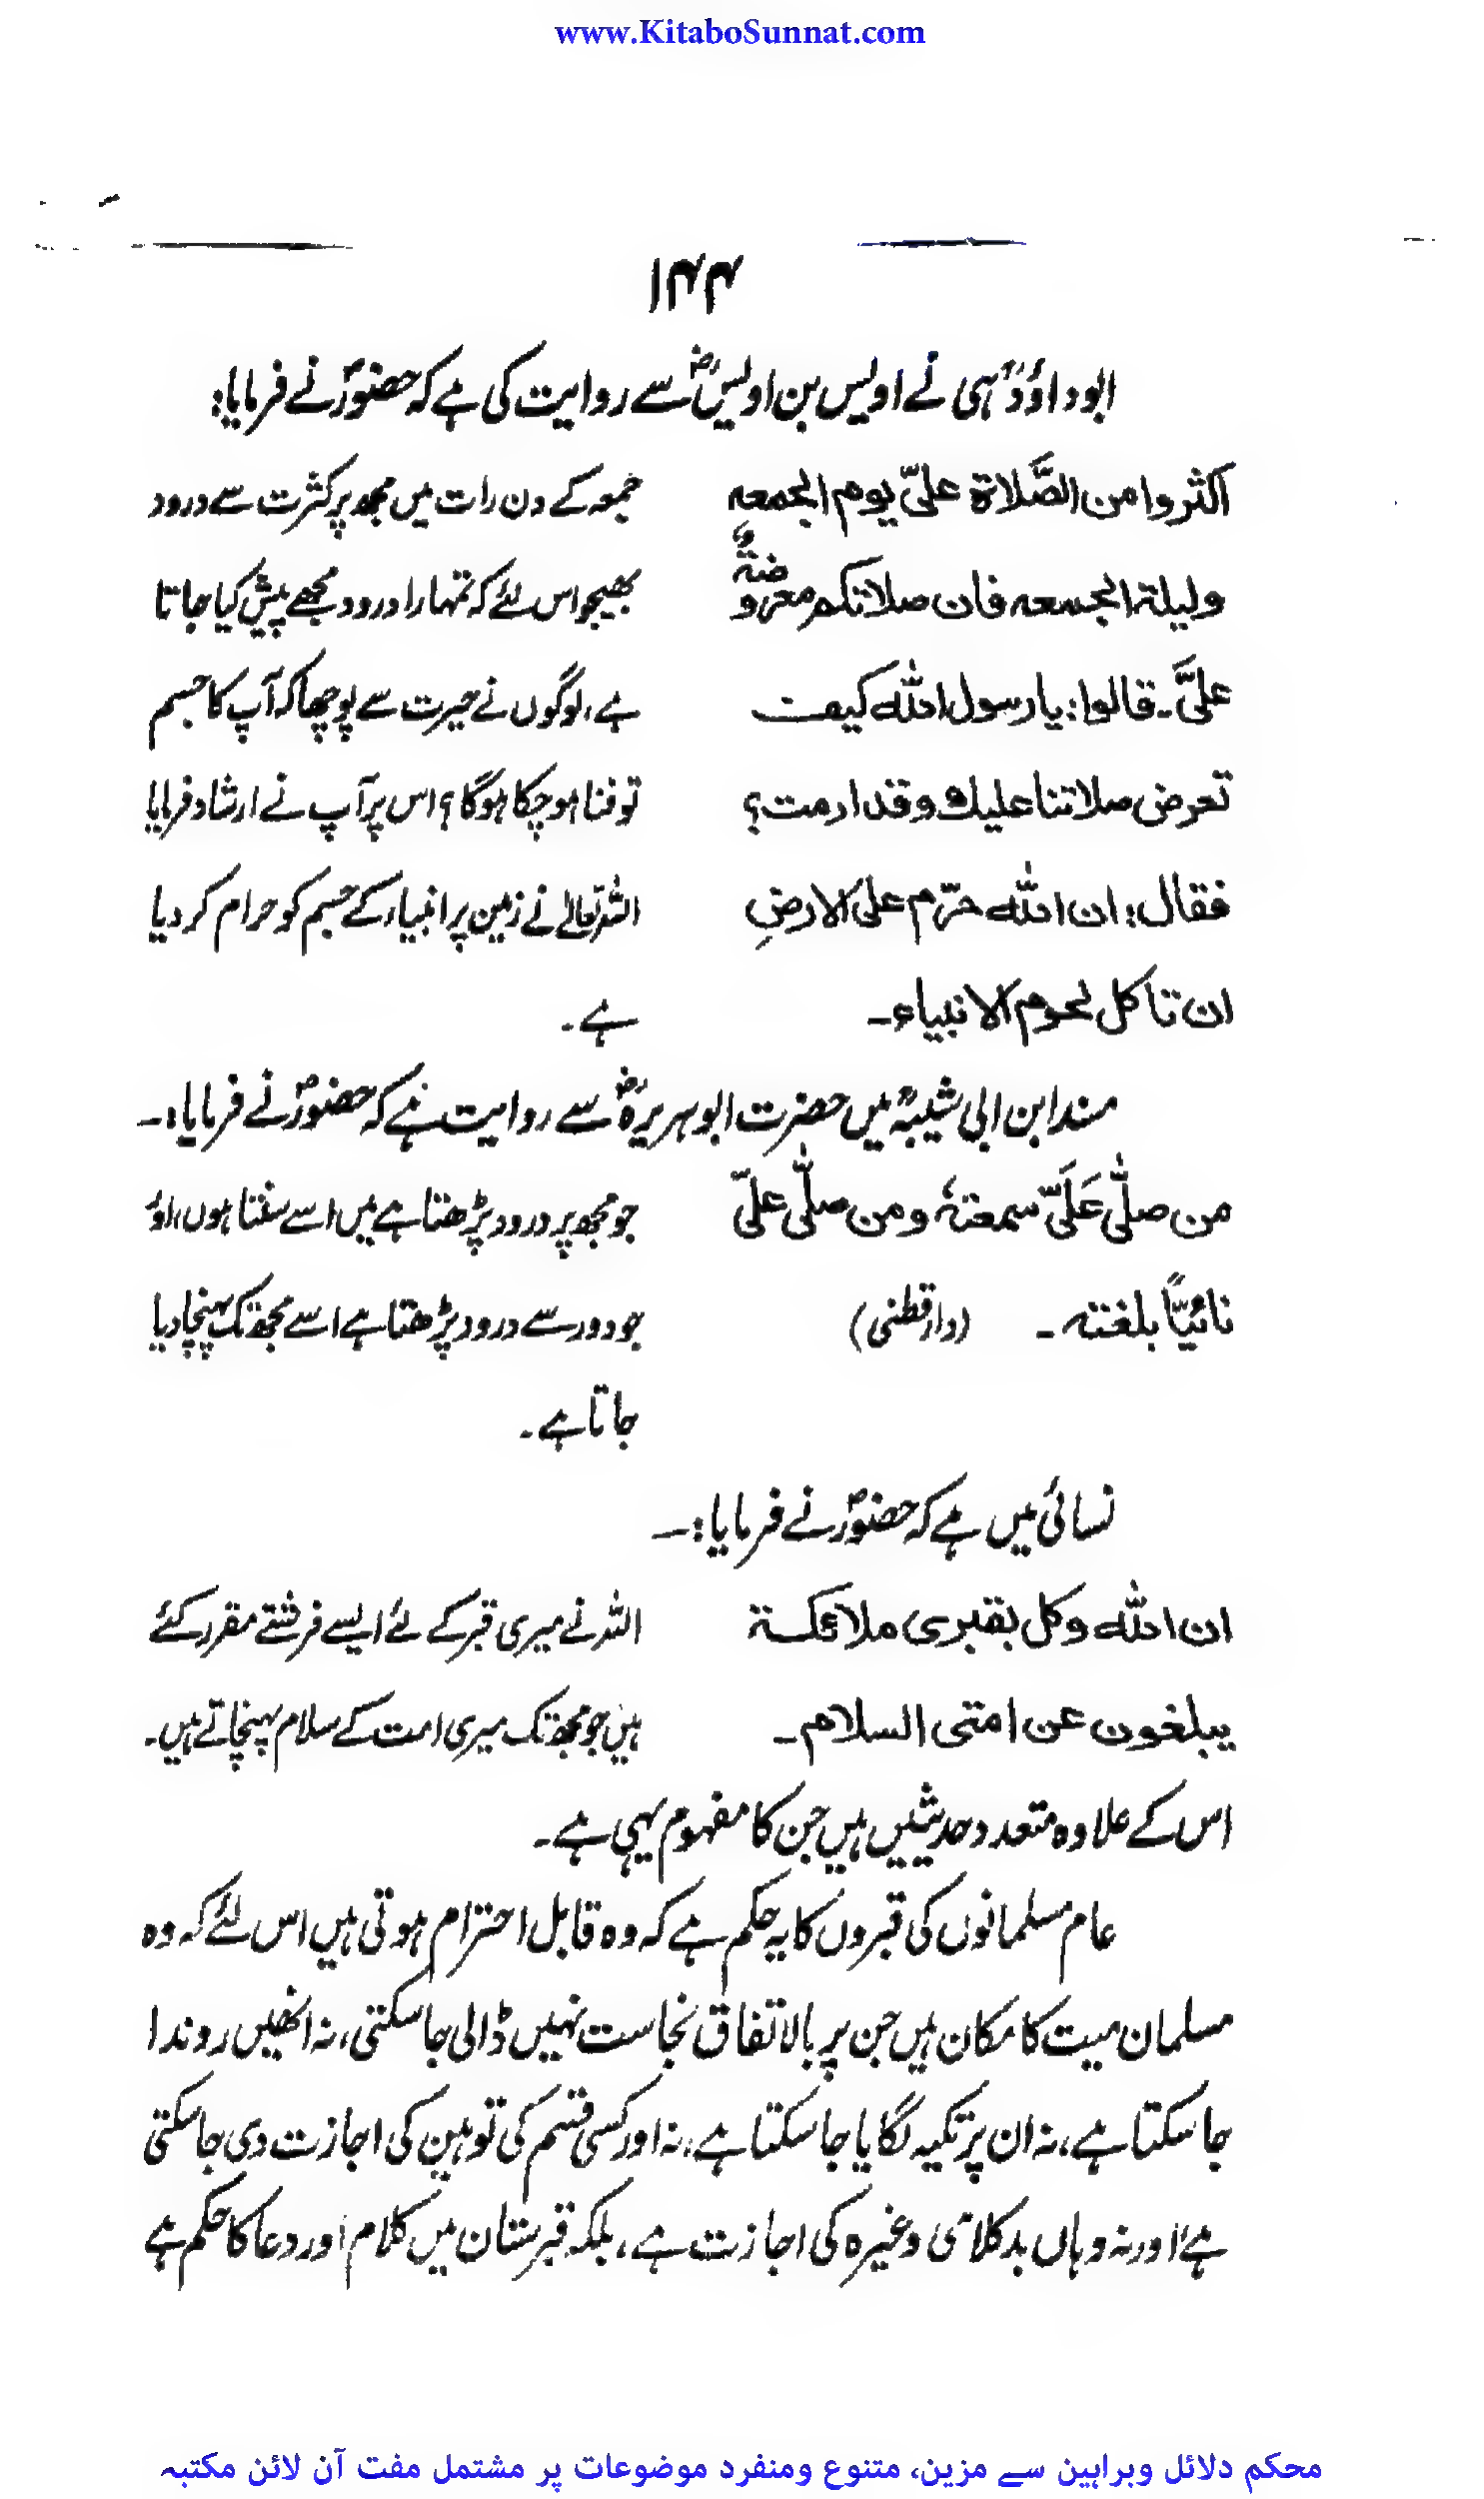 www.KitaboSunnat.com
۱۴۴
ابوداؤدؒ ہی نے اویس بن اویسؓ سے روایت کی ہے کہ حضورؐ نے فرمایا:
اکثروا من الصَّلاۃ علیّ یوم الجمعہ
ولیلۃ الجمعہ فان صلاتکم معروضۃٌ
علیَّ۔ قالوا: یا رسول اللہ کیف
تعرض صلاتنا علیك وقد ارمت؟
فقال: ان اللہ حرّم علی الارضِ
ان تاکل لحوم الانبیاء۔
جمعہ کے دن رات میں مجھ پر کثرت سے درود
بھیجو اس لئے کہ تمہارا درود مجھے پیش کیا جاتا
ہے، لوگوں نے حیرت سے پوچھا کہ آپ کا جسم
تو فنا ہو چکا ہوگا؟ اس پر آپ نے ارشاد فرمایا
اللہ تعالےٰ نے زمین پر انبیاء کے جسم کو حرام کر دیا
ہے۔
مسند ابن ابی شیبہؒ میں حضرت ابوہریرہؓ سے روایت ہے کہ حضورؐ نے فرمایا:۔
من صلّٰی عَلَیَّ سمعتہٗ ومن صلّٰی علیّ
نائیًا بلغتہ ۔ (دارقطنی)
جو مجھ پر درود پڑھتا ہے میں اسے سنتا ہوں، اور
جو دور سے درود پڑھتا ہے اسے مجھ تک پہنچا دیا
جاتا ہے۔
نسائی میں ہے کہ حضورؐ نے فرمایا:۔
ان اللہ وکل بقبری ملائکۃ
یبلغون عن امتی السلام۔
اللہ نے میری قبر کے لئے ایسے فرشتے مقرر کئے
ہیں جو مجھ تک میری امت کے سلام پہنچاتے ہیں۔
اس کے علاوہ متعدد حدیثیں ہیں جن کا مفہوم یہی ہے۔
عام مسلمانوں کی قبروں کا یہ حکم ہے کہ وہ قابل احترام ہوتی ہیں اس لئے کہ وہ
مسلمان میت کا مکان ہیں جن پر بالاتفاق نجاست نہیں ڈالی جا سکتی، نہ انھیں روندا
جا سکتا ہے، نہ ان پر تکیہ لگایا جا سکتا ہے، نہ اور کسی قسم کی توہین کی اجازت دی جا سکتی
ہے اور نہ وہاں بدکلامی وغیرہ کی اجازت ہے، بلکہ قبرستان میں کلام اور دعا کا حکم ہے
محکم دلائل وبراہین سے مزین، متنوع ومنفرد موضوعات پر مشتمل مفت آن لائن مکتبہ